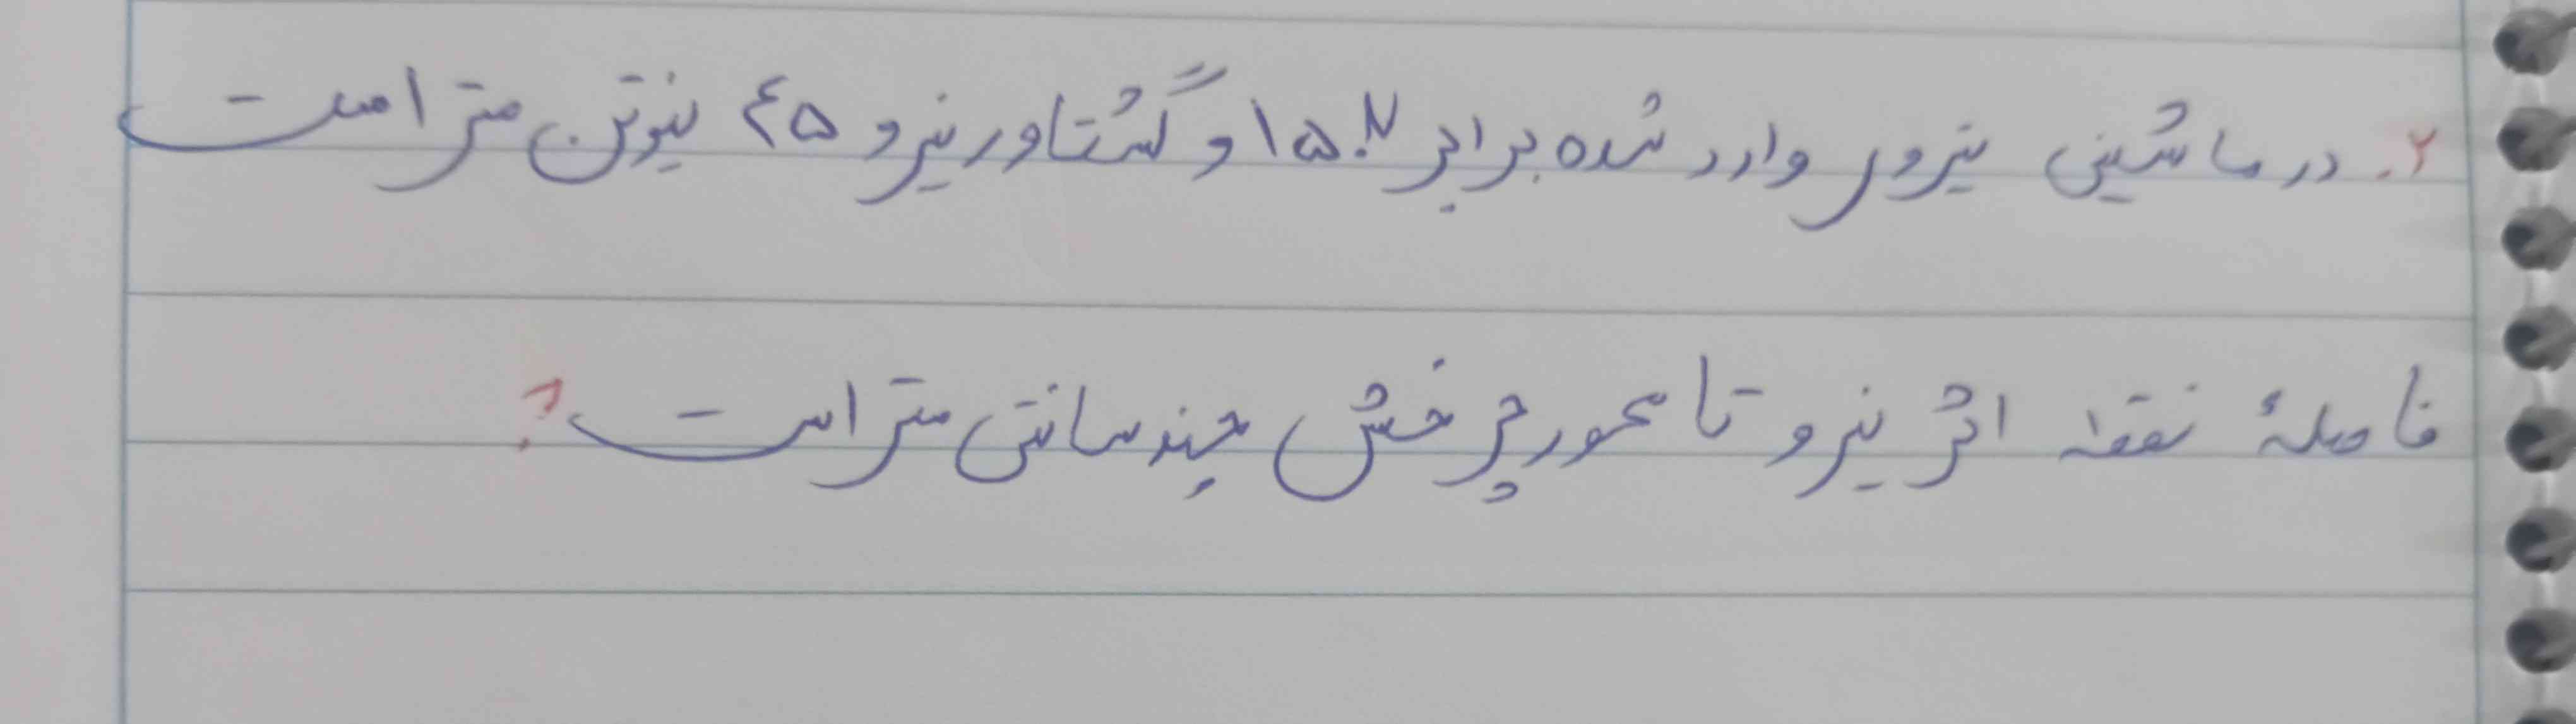 ۲. در ماشینی نیروی وارد شده برابر ۱۵۰N و گشتاور نیرو ۴۵ نیوتن متر است
فاصلهٔ نقطه اثر نیرو تا محور چرخش چند سانتی متر است؟